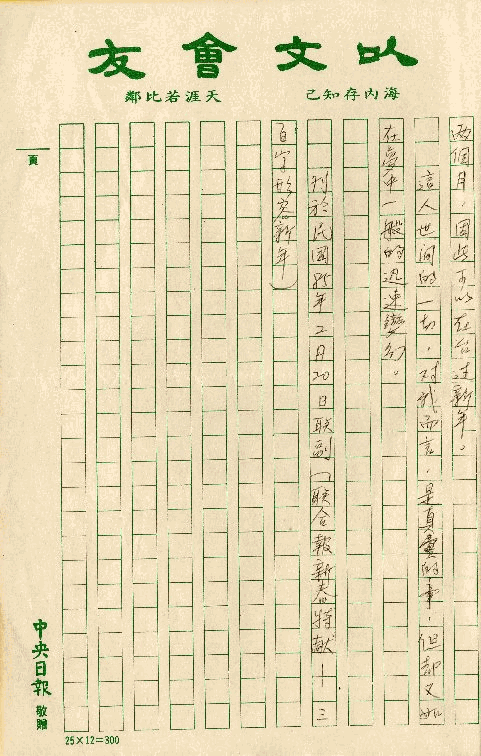 以文會友
海內存知己　天涯若比鄰
兩個月，因此可以在台過新年。
這人世间的一切，对我而言，是真實的事，但都又如
在夢中一般的迅速變幻。
刊於民國85年2月20日联副（联合報新春特献－三
百字形容新年）
頁
中央日報 敬贈
25×12=300